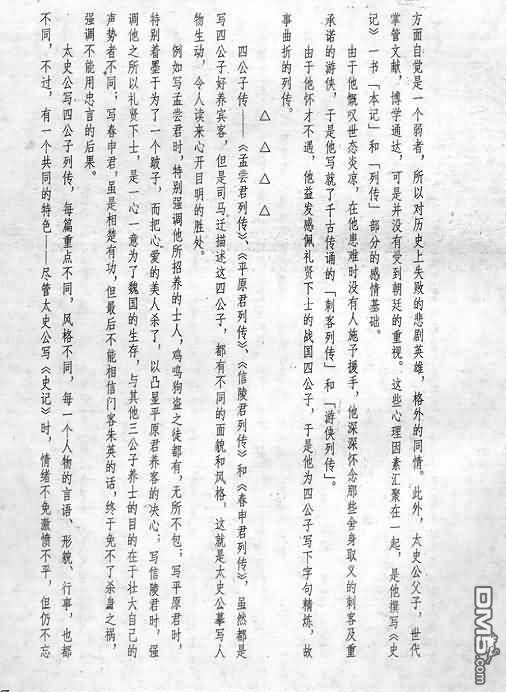 方面自觉是一个弱者，所以对历史上失败的悲剧英雄，格外的同情。此外，太史公父子，世代
掌管文献，博学通达，可是并没有受到朝廷的重视。这些心理因素汇聚在一起，是他撰写《史
记》一书「本记」和「列传」部分的感情基础。
由于他慨叹世态炎凉，在他患难时没有人施予援手，他深深怀念那些舍身取义的刺客及重
承诺的游侠，于是他写就了千古传诵的「刺客列传」和「游侠列传」。
由于他怀才不遇，他益发感佩礼贤下士的战国四公子，于是他为四公子写下字句精炼，故
事曲折的列传。
△ △ △ △
四公子传——《孟尝君列传》、《平原君列传》、《信陵君列传》和《春申君列传》，虽然都是
写四公子好养宾客，但是司马迁描述这四公子，都有不同的面貌和风格。这就是太史公摹写人
物生动，令人读来心开目明的胜处。
例如写孟尝君时，特别强调他所招养的士人，鸡鸣狗盗之徒都有，无所不包；写平原君时，
特别着墨于为了一个跛子，而把心爱的美人杀了，以凸显平原君养客的决心；写信陵君时，强
调他之所以礼贤下士，是一心一意为了魏国的生存，与其他三公子养士的目的在于壮大自己的
声势者不同；写春申君，虽是相楚有功，但最后不能相信门客朱英的话，终于免不了杀身之祸，
强调不能用忠言的后果。
太史公写四公子列传，每篇重点不同，风格不同，每一个人物的言语、形貌、行事，也都
不同，不过，有一个共同的特色——尽管太史公写《史记》时，情绪不免激愤不平，但仍不忘
DM5.com